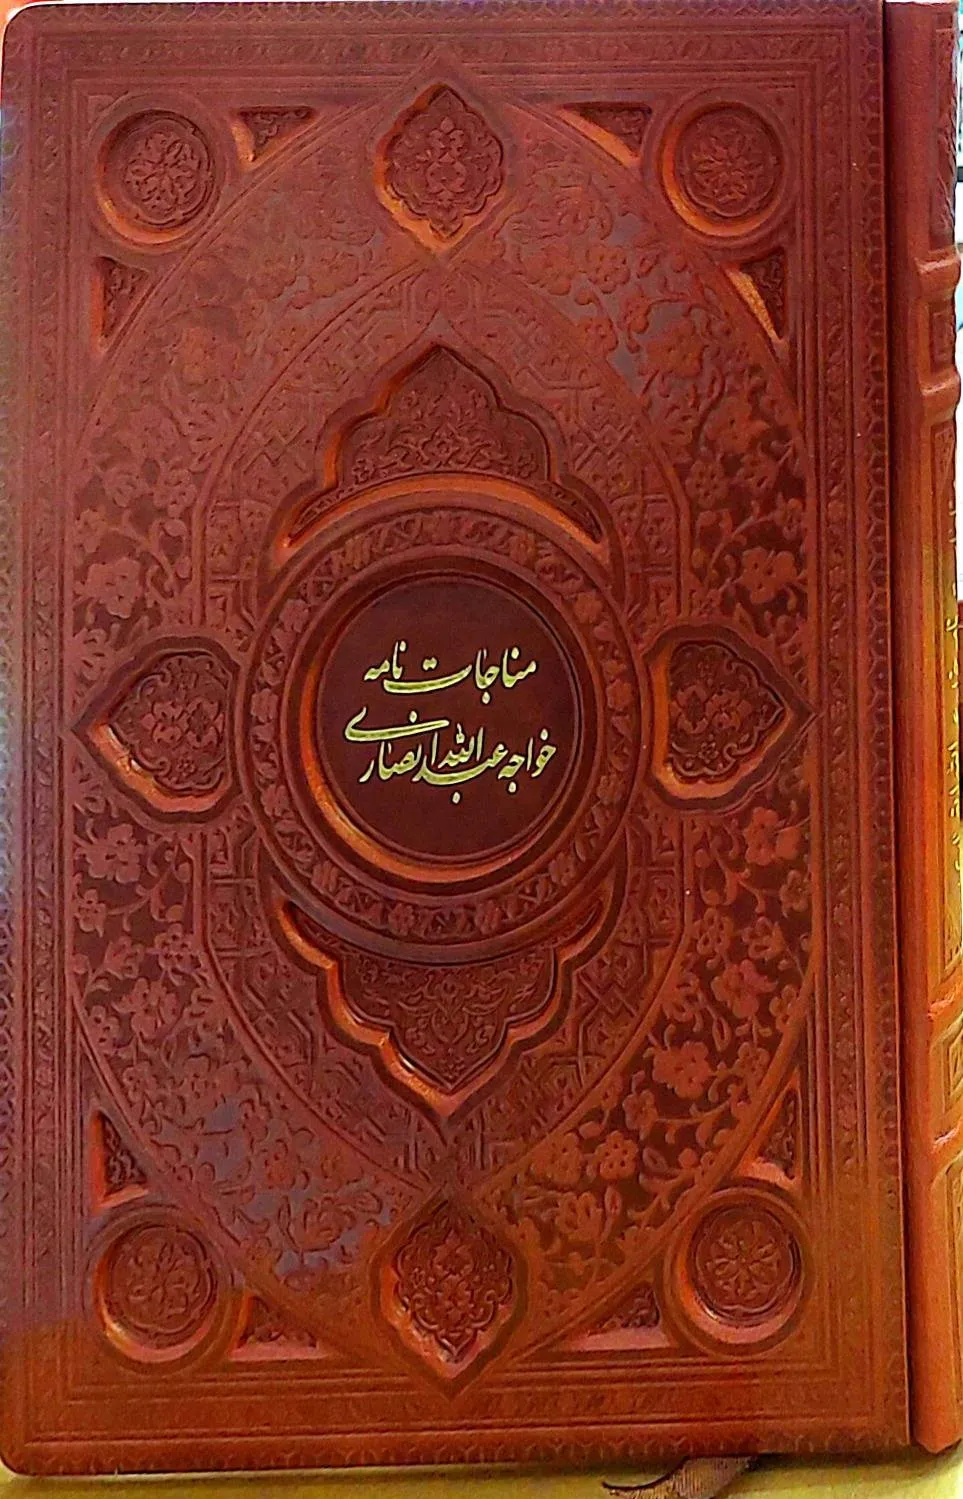 مناجات نامه
خواجه عبدالله انصاری